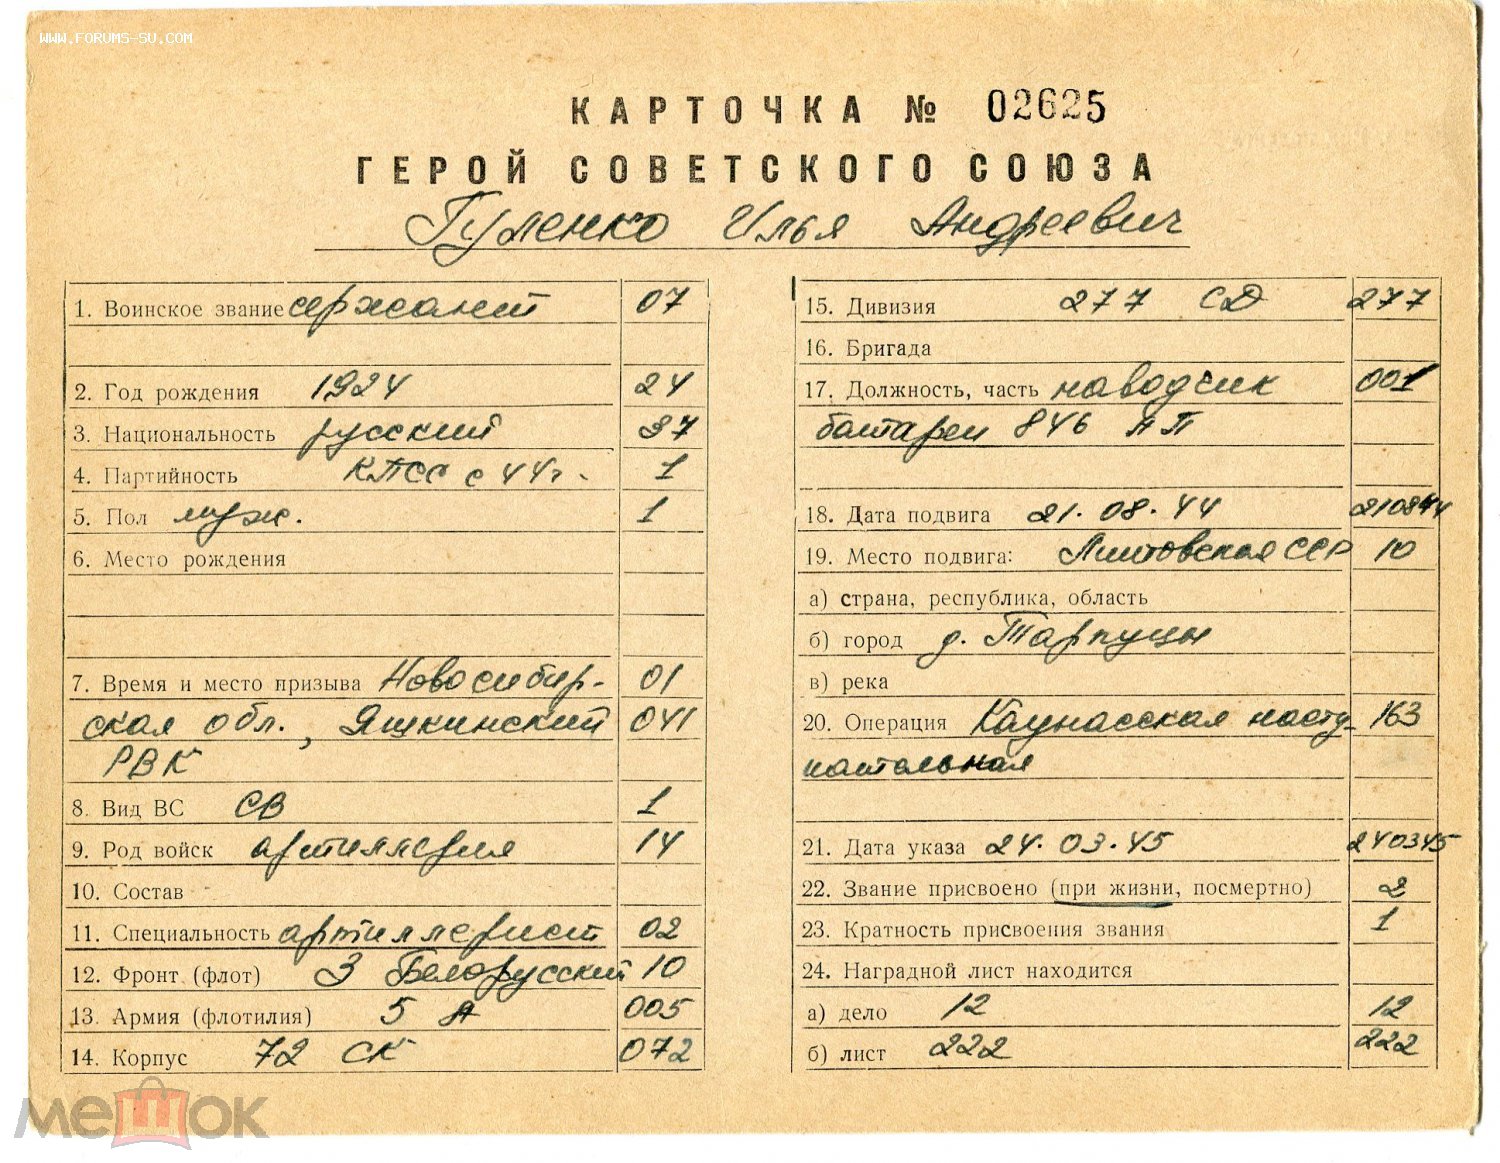 WWW.FORUMS-SU.COM
КАРТОЧКА № 02625
ГЕРОЙ СОВЕТСКОГО СОЮЗА
Гуленко Илья Андреевич
1. Воинское звание сержант 07
2. Год рождения 1924 24
3. Национальность русский 37
4. Партийность КПСС с 44 г. 1
5. Пол муж. 1
6. Место рождения
7. Время и место призыва Новосибир- 01
ская обл., Яшкинский 041
РВК
8. Вид ВС СВ 1
9. Род войск артиллерия 14
10. Состав
11. Специальность артиллерист 02
12. Фронт (флот) 3 Белорусский 10
13. Армия (флотилия) 5 А 005
14. Корпус 72 СК 072
15. Дивизия 277 СД 277
16. Бригада
17. Должность, часть наводчик 001
батареи 846 АП
18. Дата подвига 21.08.44 210844
19. Место подвига: Литовская ССР 10
а) страна, республика, область
б) город д. Тарпуцы
в) река
20. Операция Каунасская насту- 163
пательная
21. Дата указа 24.03.45 240345
22. Звание присвоено (при жизни, посмертно) 2
23. Кратность присвоения звания 1
24. Наградной лист находится
а) дело 12 12
б) лист 222 222
мешок